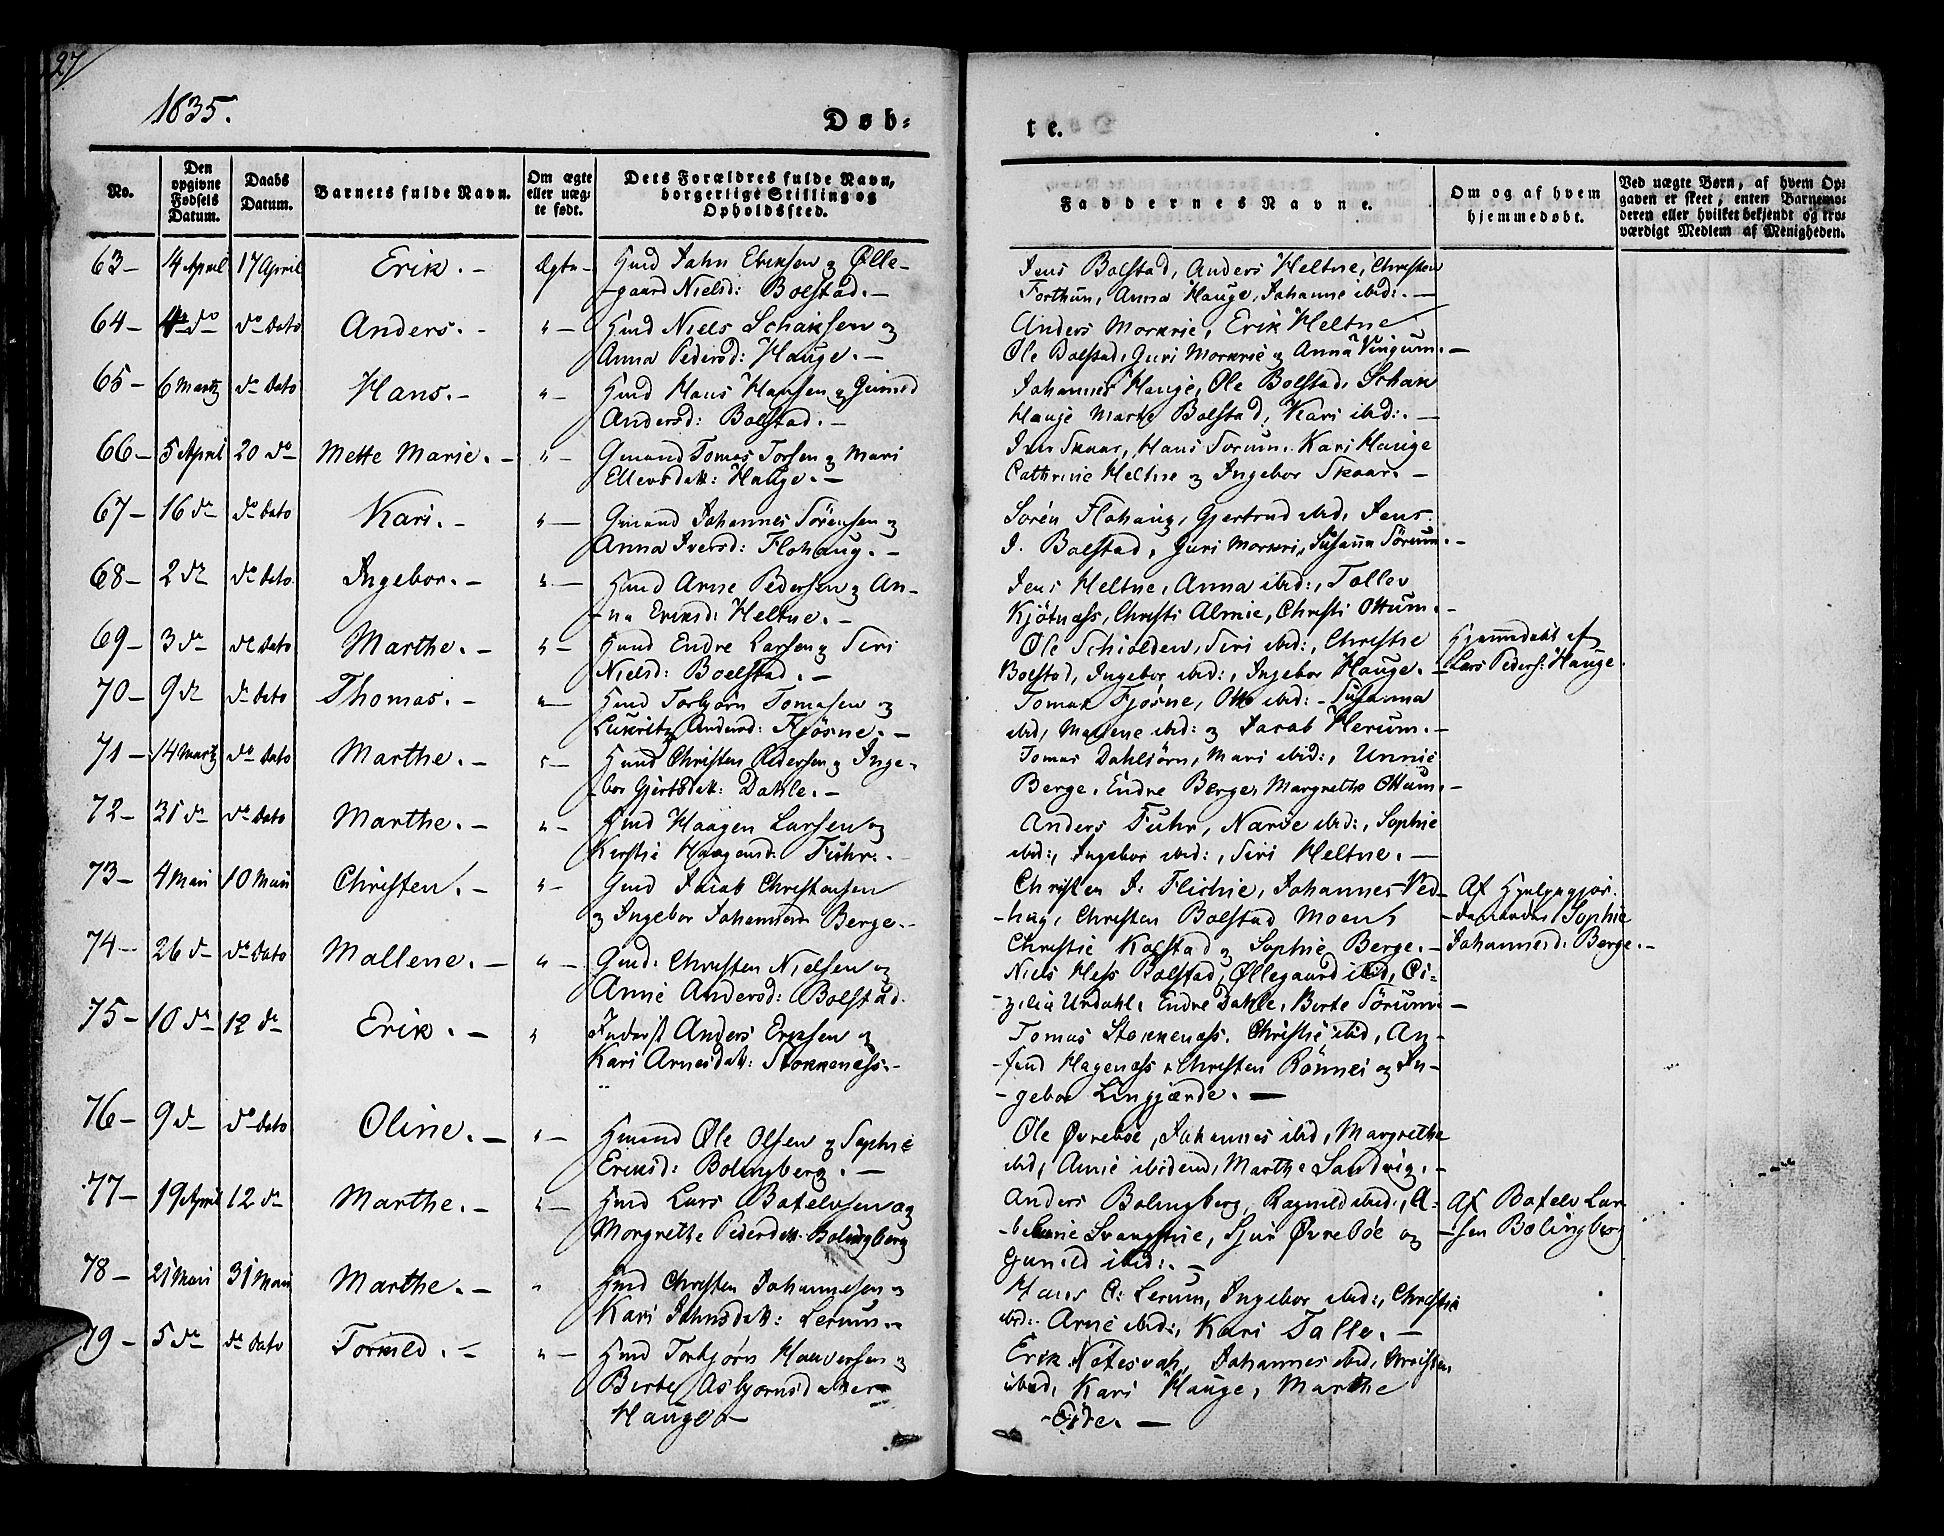 27
1835.
Døb-
te.
No.
Den opgivne Fødsels Datum.
Daabs Datum.
Barnets fulde Navn.
Om ægte eller uægte født.
Dets Forældres fulde Navn, borgerlige Stilling og Opholdssted.
Faddernes Navne.
Om og af hvem hjemmedøbt.
Ved uægte Børn, af hvem Opgaven er skeet, enten Barnemoderen eller hvilket bekjendt og troværdigt Medlem af Menigheden.
63 – 14 April 17 April Erik. – Ægte – Hmd Jahn Eriksen og Ølle-
gaard Nielsd: Bolstad. –
Jens Bolstad, Anders Heltne, Christen
Forthun, Anna Hauge, Johanne ibid:. –
64 – do do Dato Anders. – " – Hmd Niels Schaksen og
Anna Pedersd: Hauge. –
Anders Morkrie, Erik Heltne
Ole Bolstad, Guri Morkrie og Anna Vingum. –
65 – 6 Martz do Dato Hans. – " – Hmd Hans Hansen og
Andersd: Bolstad. –
Johannes Hauge, Ole Bolstad, Schak
Hauge Marthe Bolstad, Kari ibid:. –
66 – 5 April 20 do Mette Marie. – " – Gmand Tomas Torsen og Mari
Ellensdatt: Hauge. –
Jens Skaar, Hans Sorum. Kari Hauge
Cathrine Heltne og Ingebor Skaar. –
67 – 16 do do Dato Kari. – " – Gmand Johannes Sørensen og
Anna Iversd: Flohaug. –
Sorén Flohaug, Gjertrud ibid, Jens
J. Bolstad, Guri Morkri, Susanna Sörum. –
68 – 2 do do Dato Ingebor. – " – Hmd Arne Pedersen og An-
-na Eriksd: Heltne. –
Jens Heltne, Anna ibid:, Tollev
Kjötnæss, Christi Almie, Christi Ottum. –
69 – 3 do do Dato Marthe. – " – Hmd Endre Larsen og Siri
Nielsd: Boelstad. –
Ole Schiolden, Siri ibid:, Christie
Bolstad, Ingebor ibid:, Ingebor Hauge. –
Hjemmedøbt af
Lars Peders: Hauge.
70 – 9 do do Dato Thomas. – " – Hmd Torbjörn Tomasen og
Lukritz Andersd: Fjösne. –
Tomas Fjösne, Otto ibid: – Susanna
ibid, Mallene ibid: og Jacob Herum. –
71 – 14 Martz do Dato Marthe. – " – Hmd Christen Pedersen og Inge-
bor Gjertsdatt: Dahle. –
Tomas Dahlsjörn, Mari ibid:, Unnie
Berge, Endre Berge, Margrethe Ottum. –
72 – 31 do do Dato Marthe. – " – Hmd Haagen Larsen og
Kerstie Haagensd: Fuhr. –
Anders Fuhr, Narve ibid:, Sophie
ibid:, Ingebor ibid:, Siri Heltne. –
73 – 4 Maii 10 Maii Christen. – " – Gmd Jacob Christensen
og Ingebor Johannesd: Berge. –
Christen J: Flichie, Johannes Ved-
-hug, Christen Bolstad Moen,
Christie Kolstad og Sophie Berge. –
Af
Sophie
Johannesd: Berge. –
74 – 26 do do Dato Mallene. – " – Gmd: Christen Nielsen og
Anne Andersd: Bolstad.
Niels Hess Bolstad, Øllegaard ibid, Ci-
-zilia Urdahl, Endre Dahle, Birte Sörum –
75 – 10 do 12 do Erik. – " Inderst Anders Ericksen og
Kari Arnesdatt: Stokkenæss. –
Tomas Stokkenæss, Christie ibid, An-
-find Hagenæss, Christen Rönnei og In-
-gebor Lingjærde. –
76 – 9 do do Dato Oline. – " – Hmand Ole Olsen og Sophie
Eriksd: Bolingberg. –
Ole Øvreboe, Johannes ibid, Margrethe
ibid, Anne ibidem, Marthe Sandvig. –
77 – 19 April 12 do Marthe. – " – Hmd Lars Botelvsen og
Morgrethe Pedersdatt. Bolingberg
Anders Bolingberg, Ragnild ibid:, A-
Svangstrie, Sjur Øvreböe og
Gunild ibid:. –
Af Botelv Lar-
-sen Bolingberg
78 – 21 Maii 31 Maii Marthe. – " Hmd Christen Johannesen og
Kari Johnsdatt: Lerum. –
Hans C: Lerum, Ingebor ibid:, Christie
ibid:. Arne ibid:, Kari Talle. –
79 – 5 do do Dato Tormod. – " – Hmd Torbjørn Halvorsen og
Birte Asbjornsdatter
Hauge –
Erik, Johannes ibid, Christen
ibid, Kari Hauge, Marthe
Eide. –